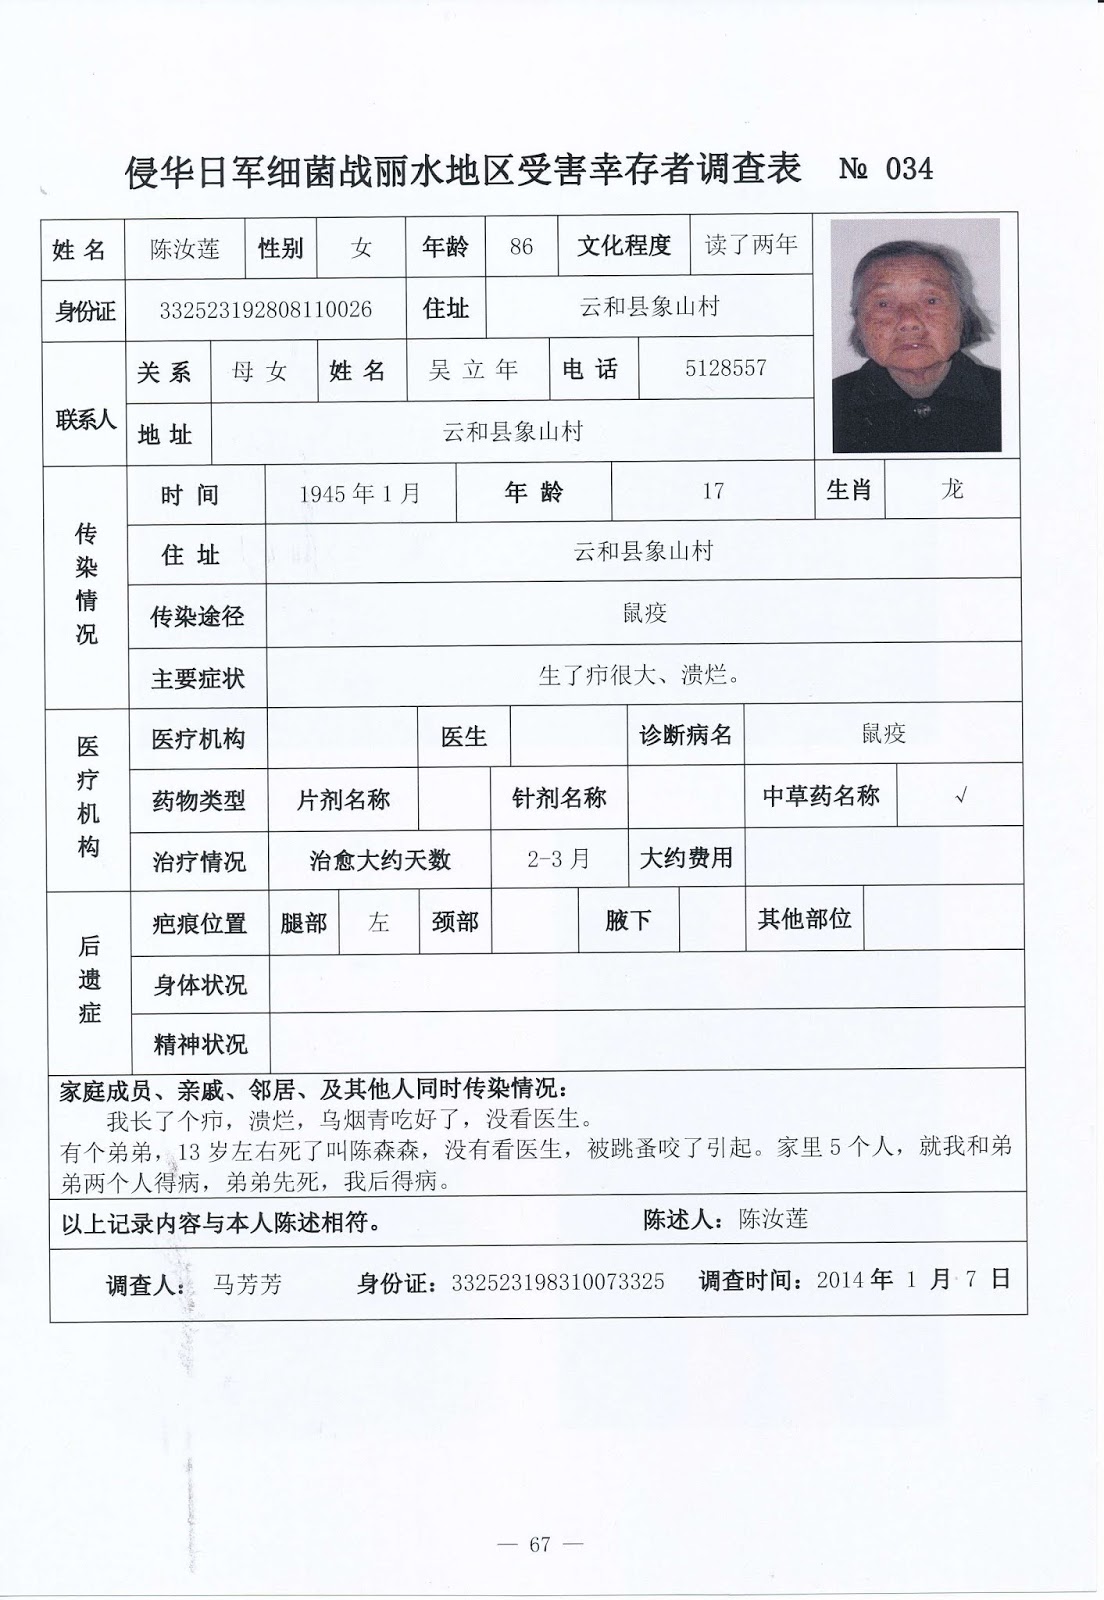 侵华日军细菌战丽水地区受害幸存者调查表 № 034
姓 名 陈汝莲 性别 女 年龄 86 文化程度 读了两年
身份证 332523192808110026 住址 云和县象山村
联系人 关 系 母 女 姓 名 吴 立 年 电 话 5128557
地 址 云和县象山村
传染情况 时 间 1945 年 1 月 年 龄 17 生肖 龙
住 址 云和县象山村
传染途径 鼠疫
主要症状 生了疖很大、溃烂。
医疗机构 医疗机构 医生 诊断病名 鼠疫
药物类型 片剂名称 针剂名称 中草药名称 √
治疗情况 治愈大约天数 2-3 月 大约费用
后遗症 疤痕位置 腿部 左 颈部 腋下 其他部位
身体状况
精神状况
家庭成员、亲戚、邻居、及其他人同时传染情况：
我长了个疖，溃烂，乌烟青吃好了，没看医生。
有个弟弟，13 岁左右死了叫陈森森，没有看医生，被跳蚤咬了引起。家里 5 个人，就我和弟
弟两个人得病，弟弟先死，我后得病。
以上记录内容与本人陈述相符。 陈述人：陈汝莲
调查人： 马芳芳 身份证：332523198310073325 调查时间：2014 年 1 月 7 日
— 67 —